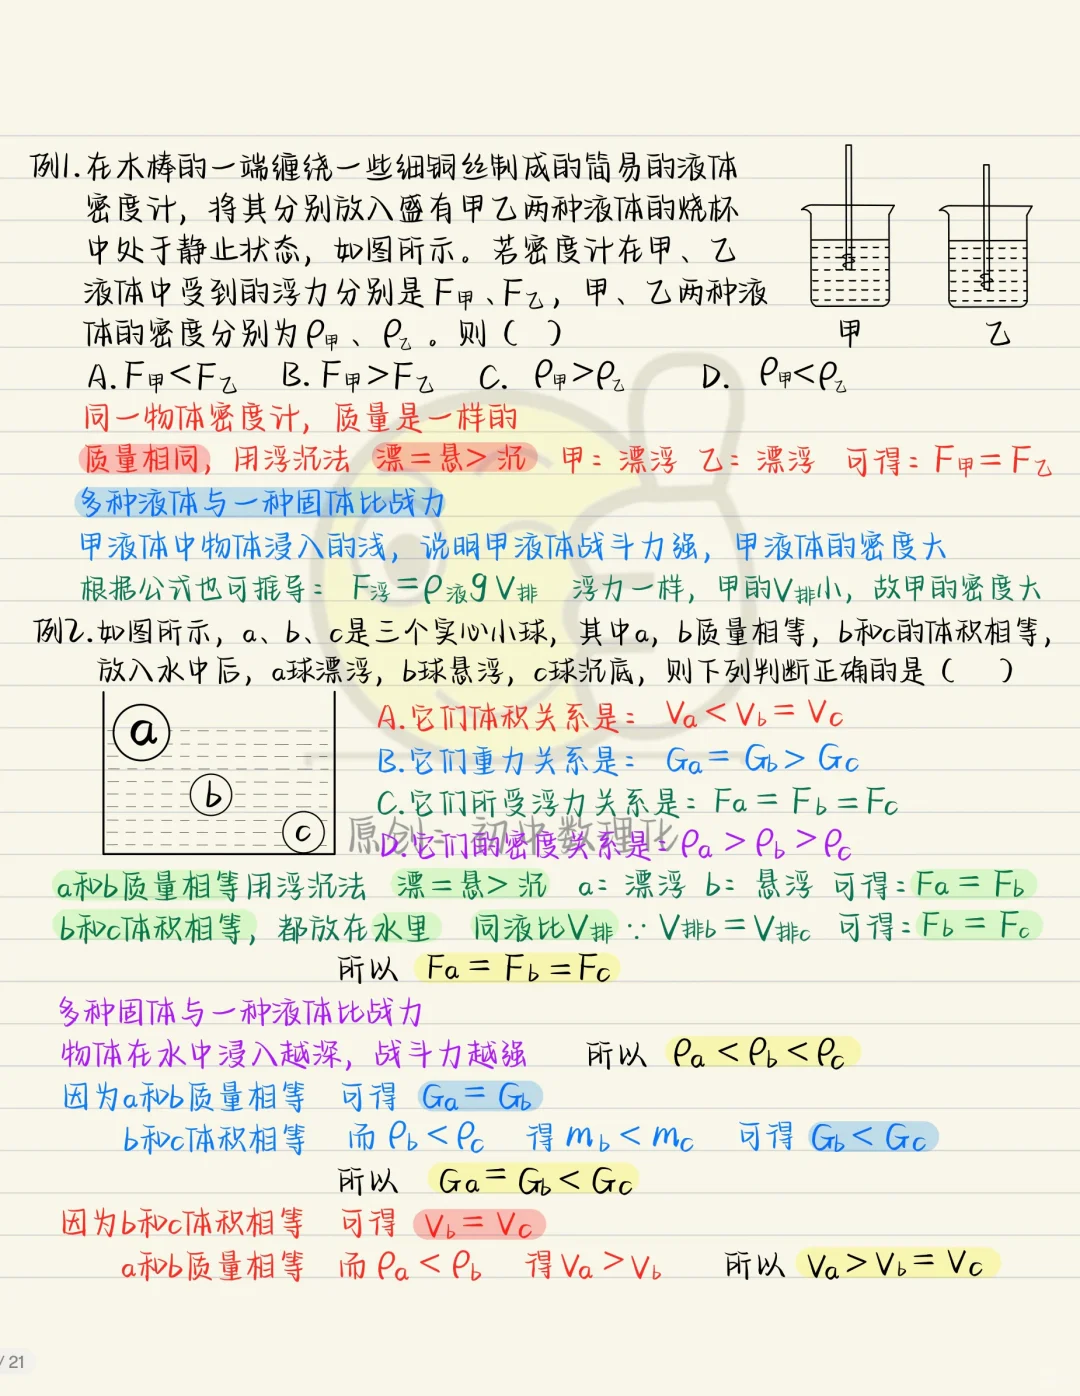 例1.在木棒的一端缠绕一些细铜丝制成的简易的液体
密度计，将其分别放入盛有甲乙两种液体的烧杯
中处于静止状态，如图所示。若密度计在甲、乙
液体中受到的浮力分别是F甲、F乙，甲、乙两种液
体的密度分别为ρ甲、ρ乙。则（ ）
甲 乙
A.F甲<F乙 B.F甲>F乙 C. ρ甲>ρ乙 D. ρ甲<ρ乙
同一物体密度计，质量是一样的
质量相同，用浮沉法 漂=悬>沉 甲：漂浮 乙：漂浮 可得：F甲=F乙
多种液体与一种固体比战力
甲液体中物体浸入的浅，说明甲液体战斗力强，甲液体的密度大
根据公式也可推导： F浮=ρ液gV排 浮力一样，甲的V排小，故甲的密度大
例2.如图所示，a、b、c是三个实心小球，其中a，b质量相等，b和c的体积相等，
放入水中后，a球漂浮，b球悬浮，c球沉底，则下列判断正确的是（ ）
a
b
c
A.它们体积关系是： Va<Vb=Vc
B.它们重力关系是： Ga=Gb>Gc
C.它们所受浮力关系是：Fa=Fb=Fc
原创：初中数理化
D.它们的密度关系是：ρa>ρb>ρc
a和b质量相等用浮沉法 漂=悬>沉 a：漂浮 b：悬浮 可得：Fa=Fb
b和c体积相等，都放在水里 同液比V排 ∵V排b=V排c 可得：Fb=Fc
所以 Fa=Fb=Fc
多种固体与一种液体比战力
物体在水中浸入越深，战斗力越强 所以 ρa<ρb<ρc
因为a和b质量相等 可得 Ga=Gb
b和c体积相等 而ρb<ρc 得mb<mc 可得Gb<Gc
所以 Ga=Gb<Gc
因为b和c体积相等 可得 Vb=Vc
a和b质量相等 而ρa<ρb 得Va>Vb 所以 Va>Vb=Vc
/ 21